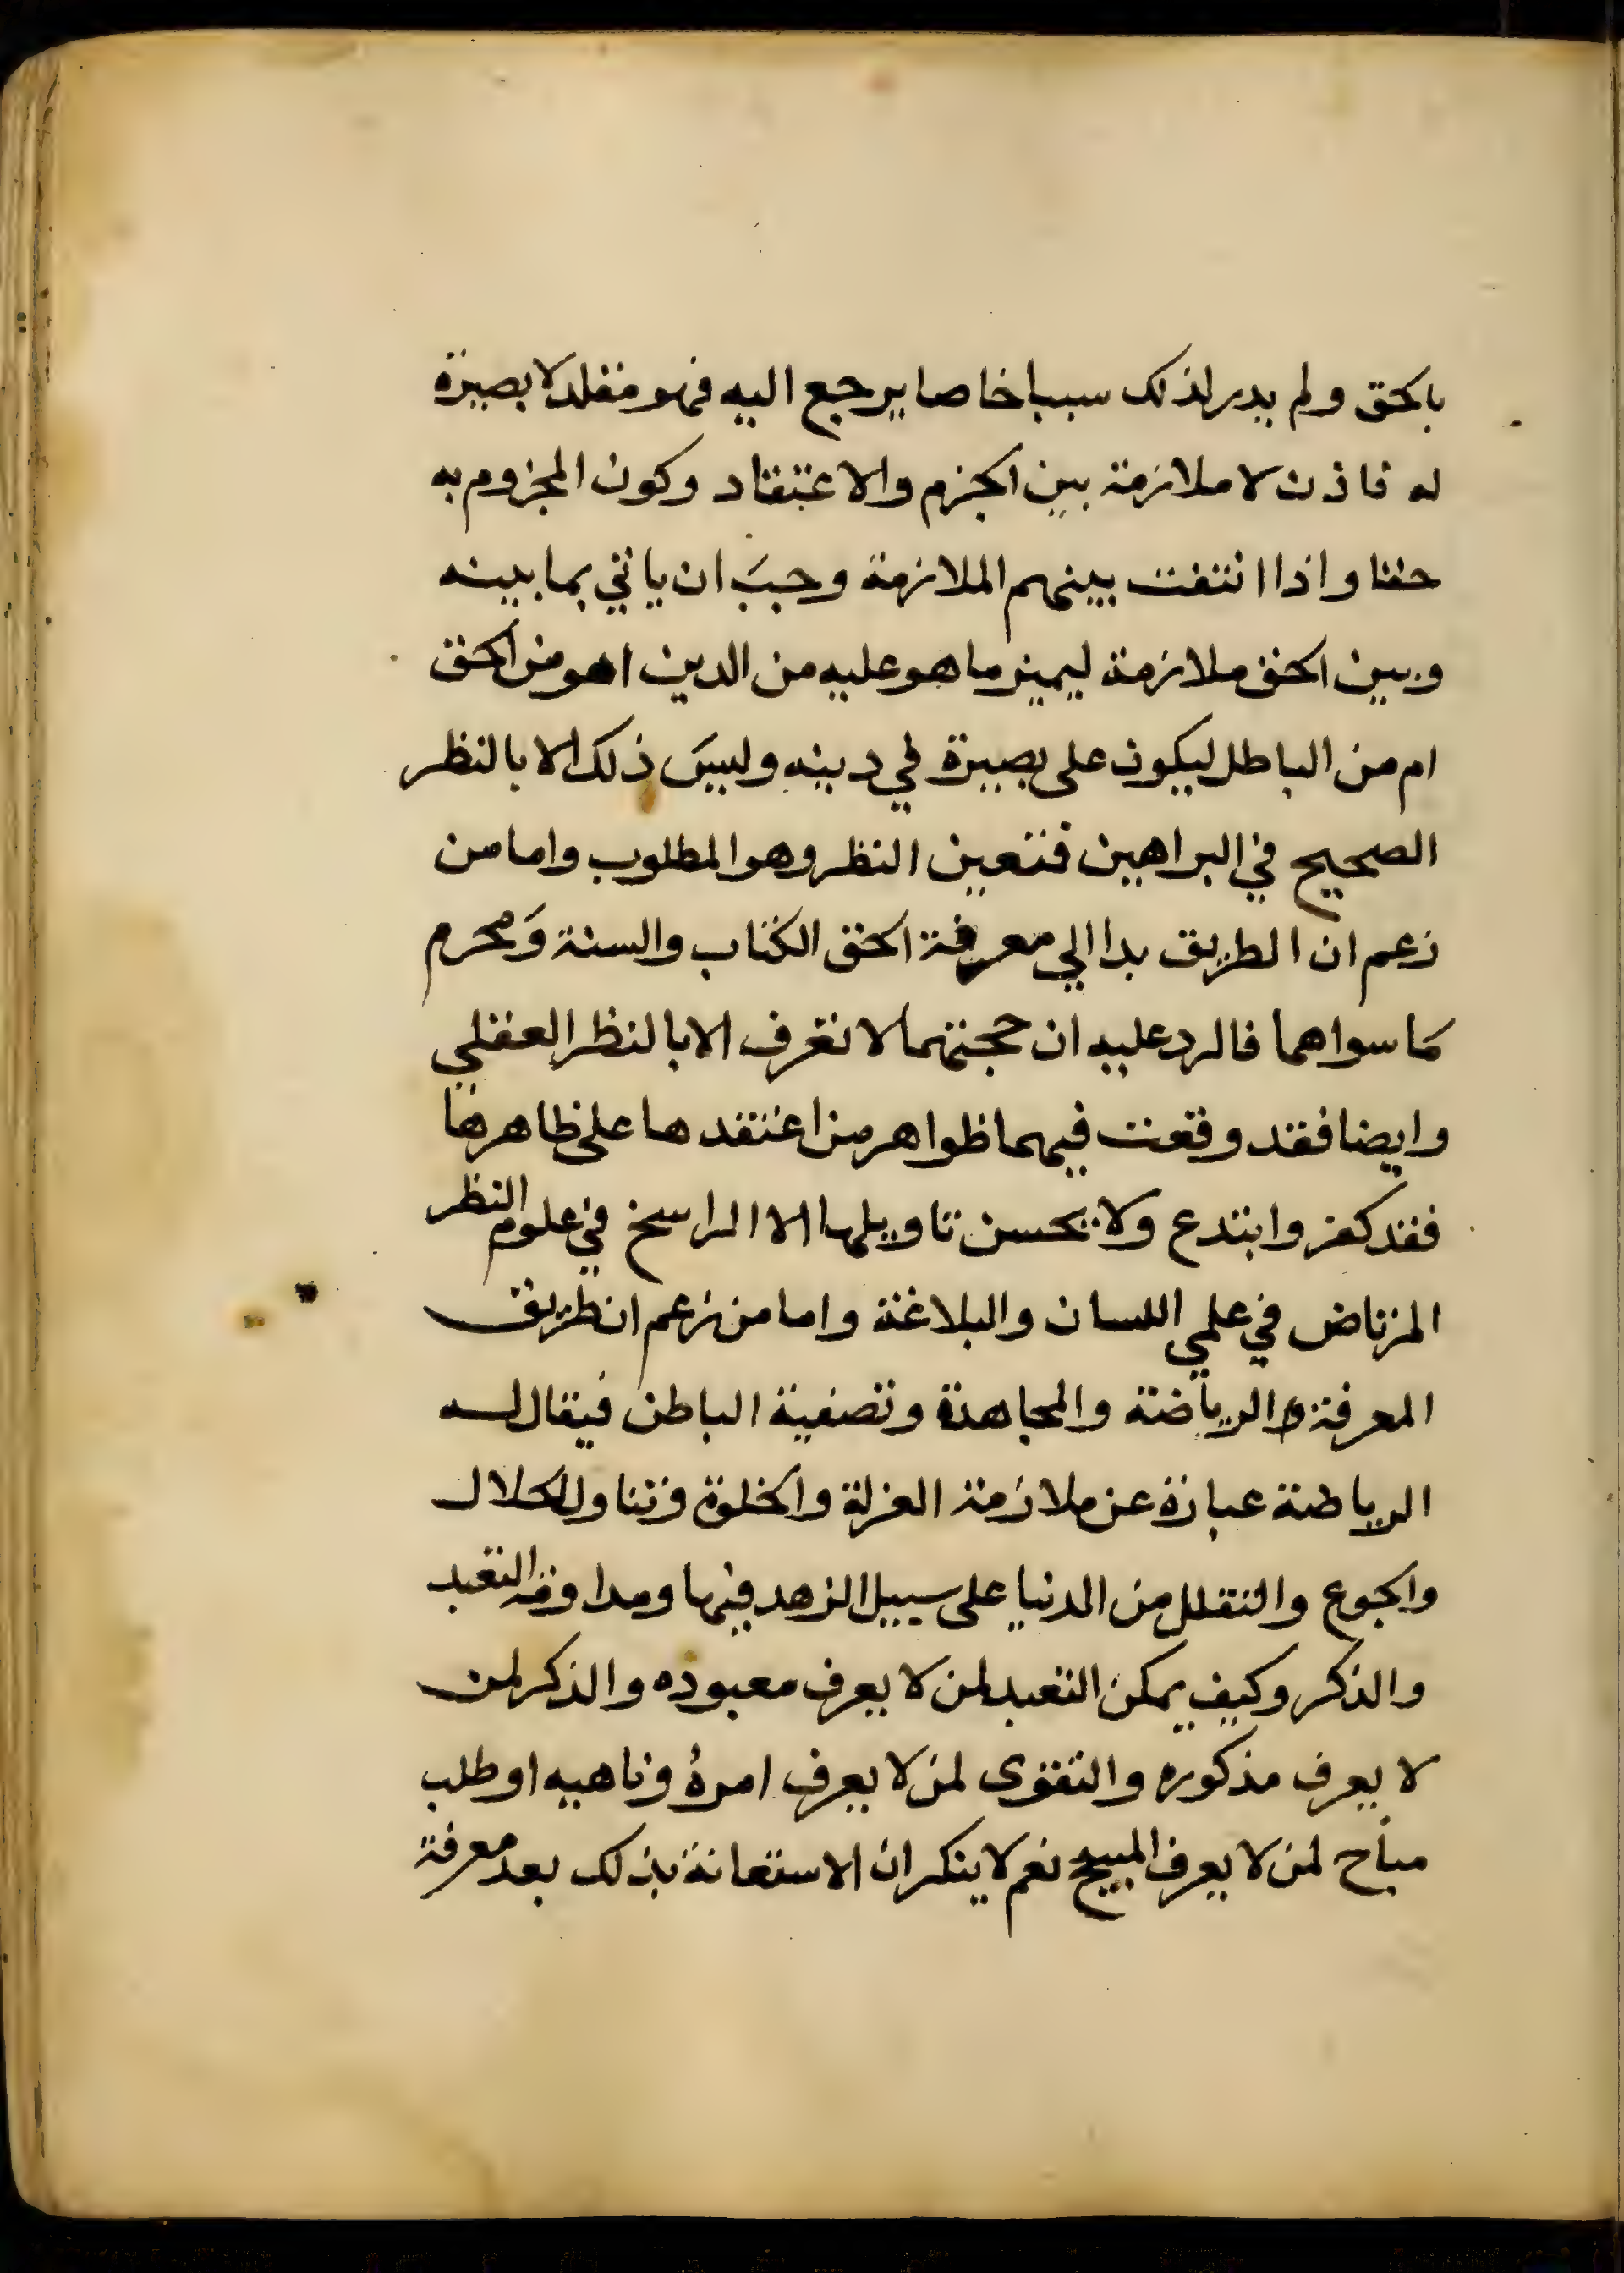 بالحق ولم يدر لذلك سببا خاصا يرجع اليه فهو مقلد لا بصيرة
له فاذن لا ملازمة بين الجزم والاعتقاد وكون المجزوم به
حقا واذا انتفت بينهم الملازمة وجبَ ان ياتي بما بينه
وبين الحق ملازمة ليميز ما هو عليه من الدين اهو من الحق
ام من الباطل ليكون على بصيرة في دينه وليسَ ذلك الا بالنظر
الصحيح في البراهين فتعين النظر وهو المطلوب واما من
زعم ان الطريق بدا الي معرفة الحق الكتاب والسنة وَمحرم
مَا سواهما فالرد عليه ان حجتهما لا تعرف الا بالنظر العقلي
وايضا فقد وقعت فيهما ظواهر من اعتقدها على ظاهرها
فقد كفر وابتدع ولا يحسن تاويلها الا الراسخ في علوم النظر
المرتاض في علمي اللسان والبلاغة واما من زعم ان طريق
المعرفة الرياضة والمجاهدة وتصفية الباطن فيقال له
الرياضة عبارة عن ملازمة العزلة والخلوة وتناول الحلال
والجوع والتقلل من الدنيا على سبيل الزهد فيها ومداومة التعبد
والذكر وكيف يمكن التعبد لمن لا يعرف معبوده والذكر لمن
لا يعرف مذكوره والتقوى لمن لا يعرف امرهُ وناهيه او طلب
مباح لمن لا يعرف المبيح نعم لا ينكر ان الاستعانة بذلك بعد معرفة